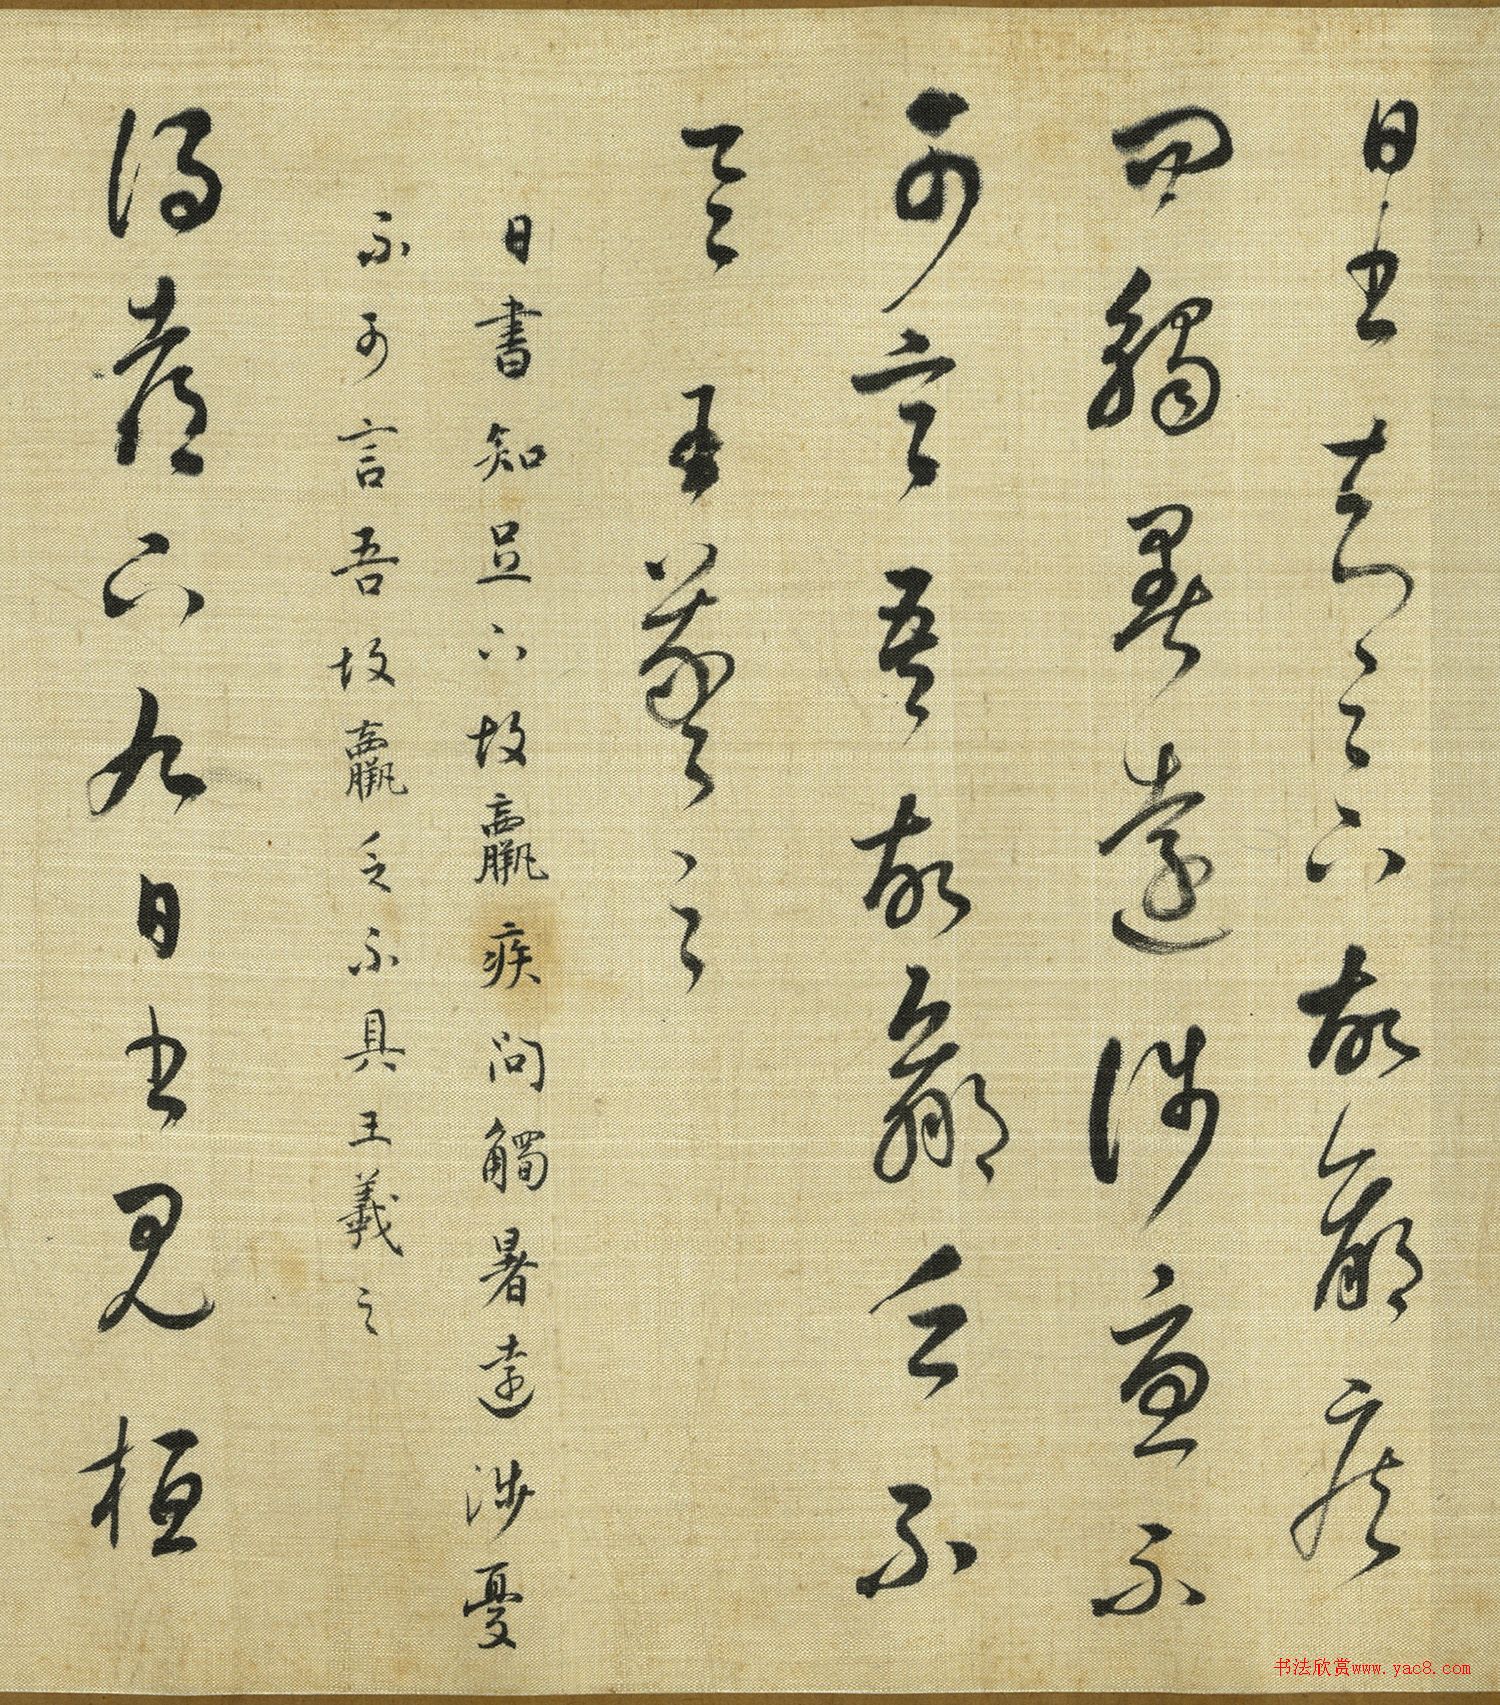 日書知足下故羸疾
問觸暑遠涉憂不
可言吾故羸乏不
具王羲之
日書知足下故羸疾問觸暑遠涉憂
不可言吾故羸乏不具王羲之
得都下九日書見桓
书法欣赏www.yac8.com